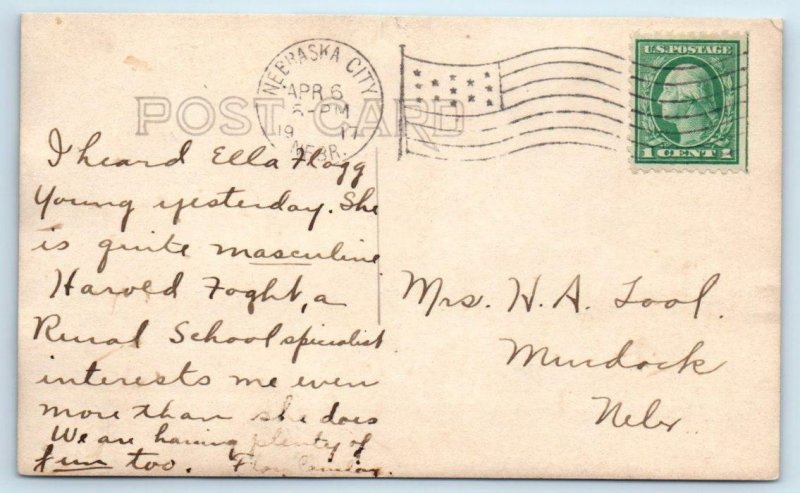 POST CARD
NEBRASKA CITY
APR 6
6-PM
19 17
NEBR.
U.S. POSTAGE
1 CENT 1
I heard Ella Flagg
Young yesterday. She
is quite masculine
Harold Foght, a
Rural School specialist
interests me even
more than she does
We are having plenty of
fun too.
Mrs. H. A. Tool.
Murdock
Nebr